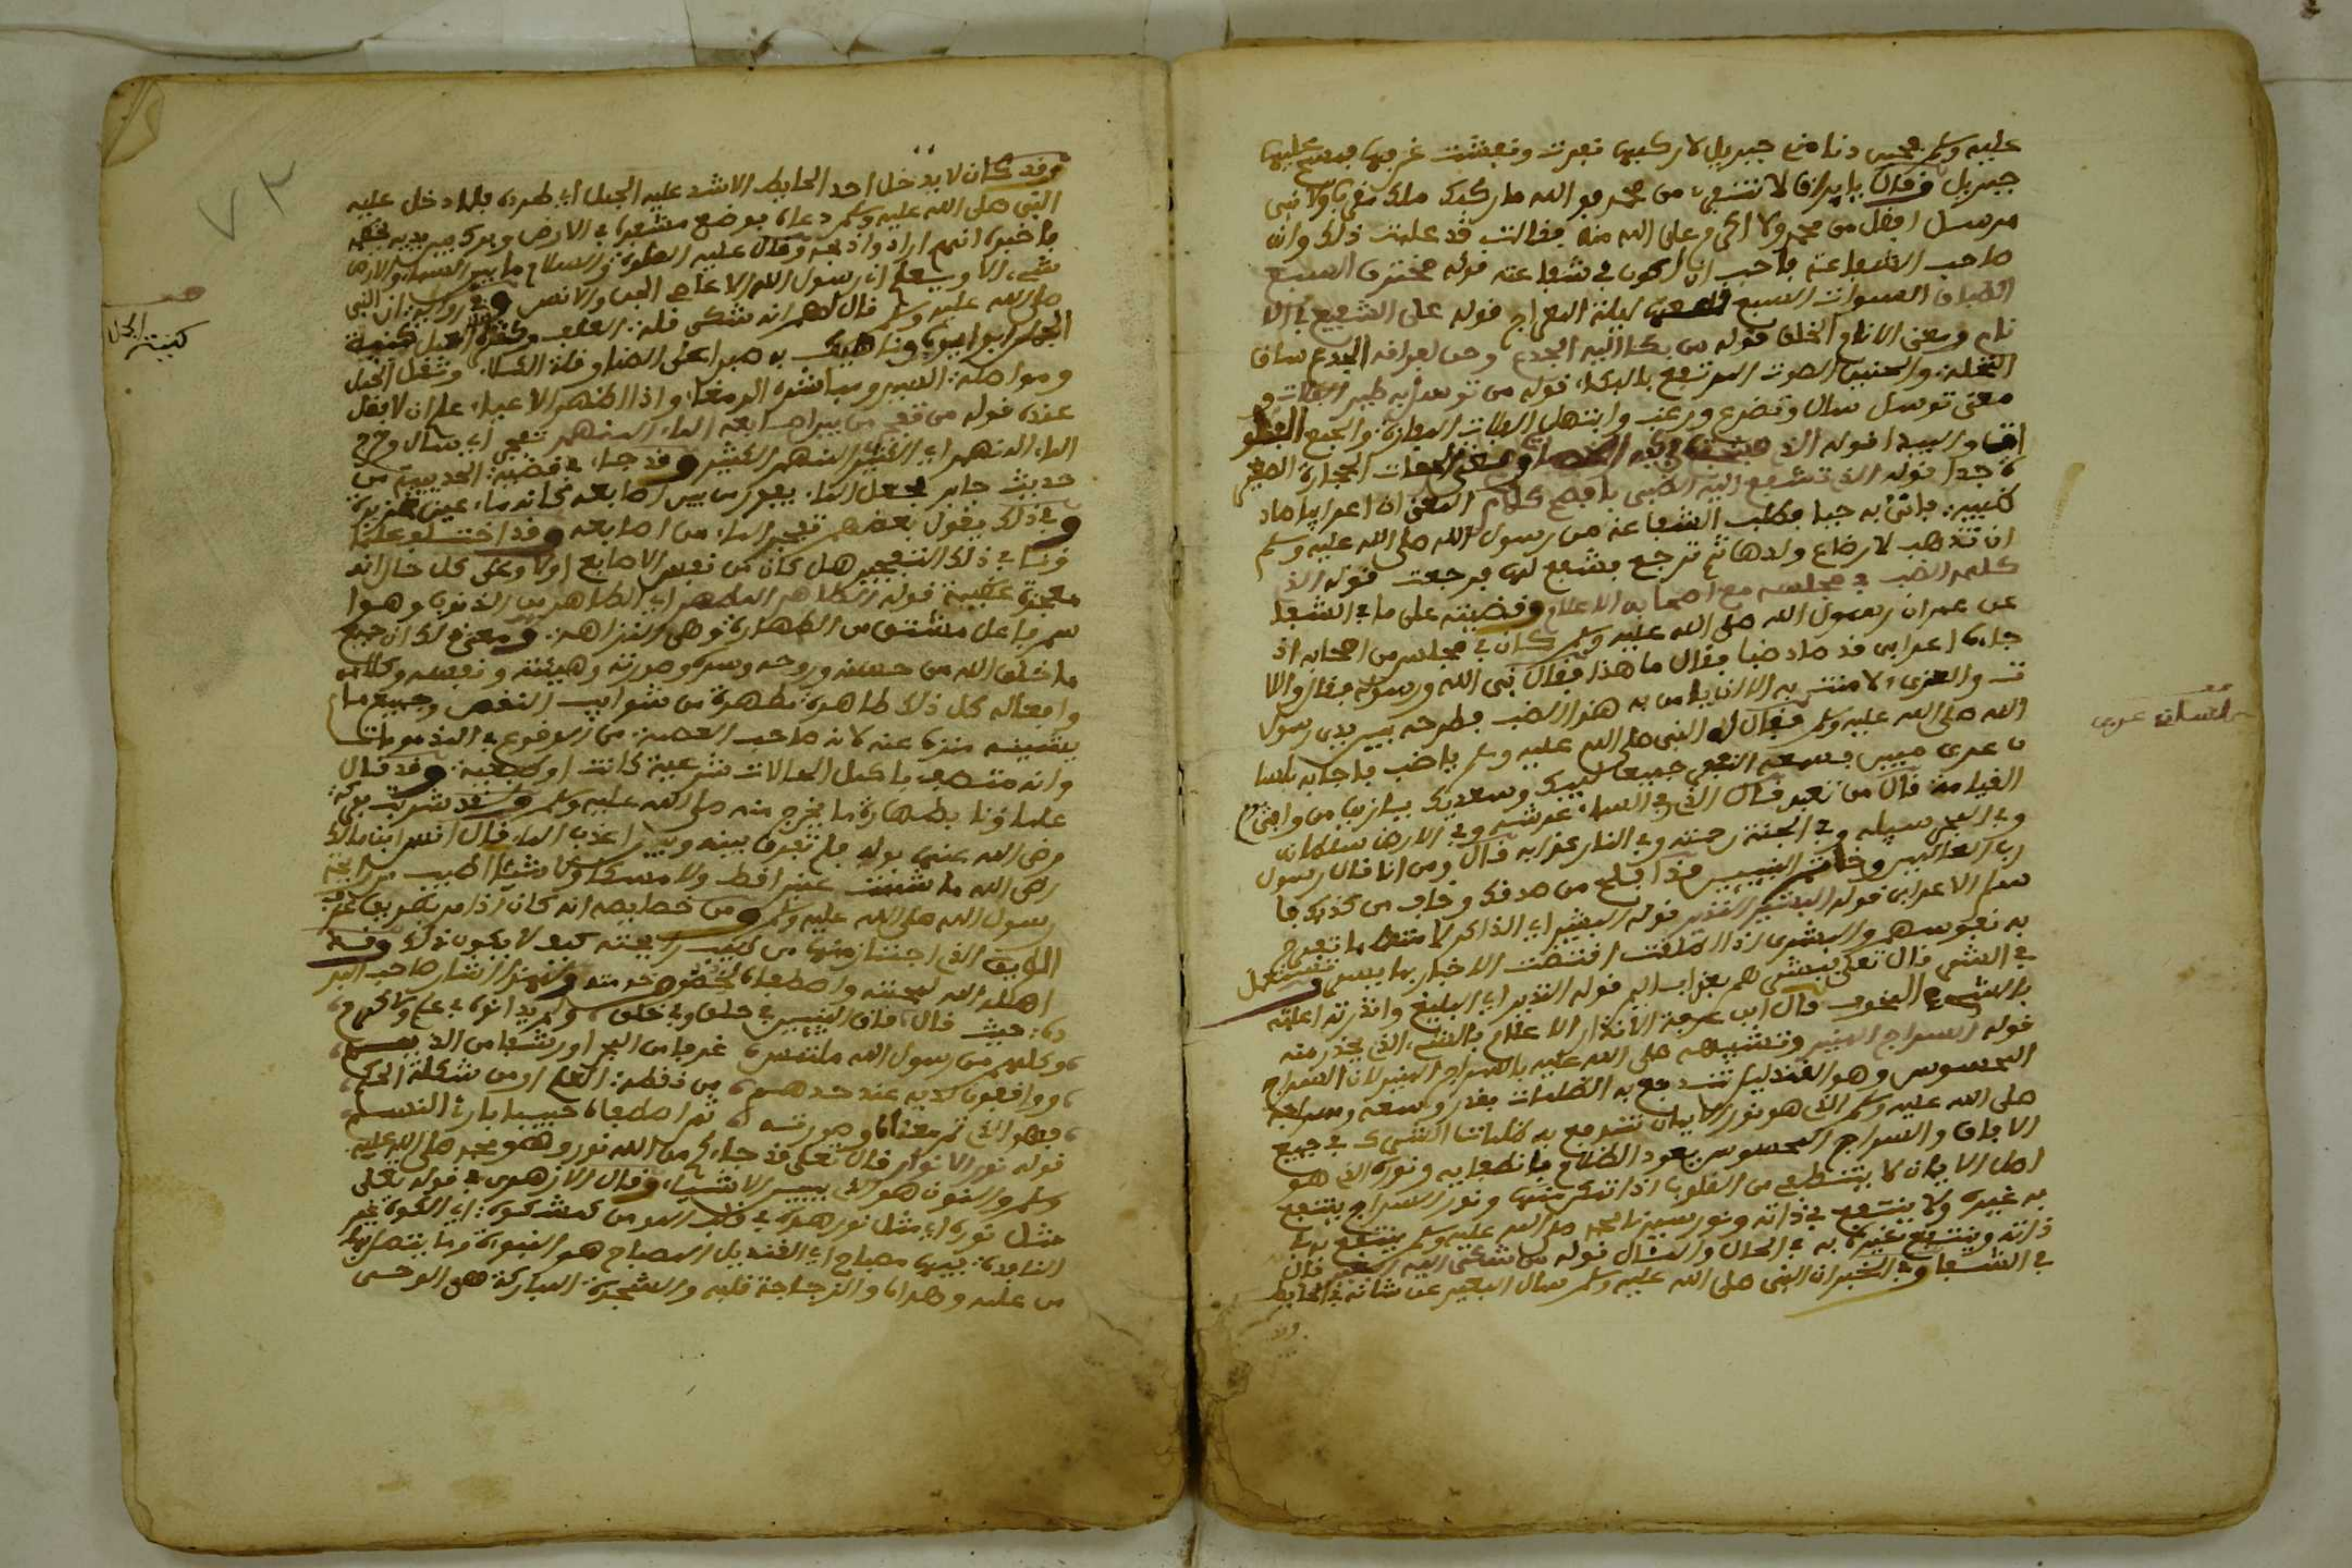 عليه وسلم فحين دنا منه جبريل لاركبها نفرت ونعشت عرفها فمسح عليها
جبريل وقال يا براق لا تنفري من محمد فو الله ما ركبك ملك مقرب ولا نبي
مرسل افضل من محمد ولا اكرم على الله منه فقالت قد علمت ذلك وانه
صاحب الشفاعة فاحب ان اكون في شفاعته قوله مخترق السبع
الطباق السموات السبع ليلة المعراج قوله على الشفيع في الا
نام ومعنى الانام الخلق قوله من بكا اليه الجذع وحن لفراقه الجذع ساق
النخلة والحنين الصوت المرتفع بالبكاء قوله من توسل به طير الفلات
معنى توسل سال وتضرع ورغب وابتهل الفلات المفازة والجمع
الحجارة الصغير
ة جدا قوله الذي تشفع اليه الضبي بافصح كلام المعنى ان اعرابيا صاد
ضبية فاتى به حيا فطلب الشفاعة من رسول الله صلى الله عليه وسلم
ان تذهب لارضاع ولدها ثم ترجع فشفع لها فرجعت قوله الذي
كلمه الضب في مجلسه مع اصحابه الاعلام وقضيته على ما في الشفا
عن عمر ان رسول الله صلى الله عليه وسلم كان في مجلس من اصحابه اذ
جاءه اعرابي قد صاد ضبا فقال ما هذا فقال نبي الله ورسوله فقال واللا
ت والعزى لا امنت به الا ان يامن به هذا الضب فطرحه بين يدي رسول
الله صلى الله عليه وسلم فقال له النبي صلى الله عليه وسلم يا ضب فاجابه بلسا
ن عربي مبين فسمعه القوم جميعا لبيك وسعديك يا زين من وافى
القيامة قال من تعبد قال الذي في السماء عرشه وفي الارض سلطانه
وفي البحر سبيله وفي الجنة رحمته وفي النار عذابه قال ومن انا قال رسول
رب العالمين وخاتم النبيين قد افلح من صدقك وخاب من كذبك فا
سلم الاعرابي قوله البشير النذير قوله البشير اي الذاكر لامته ما تفرح
به نفوسهم والبشرى اذا اطلقت اقتضت الاخبار بما يسر وتستعمل
في الشر قال تعلى فبشرهم بعذاب اليم قوله النذير اي البليغ وانذرته اعلمته
بالشيء المخوف قال ابن عرفة الانذار الاعلام بالشيء الذي يحذر منه
قوله السراج المنير وتشبيهه صلى الله عليه بالسراج المنير لان السراج
المحسوس وهو القنديل تندفع به الظلمات بقدر وسعه وسراجه
صلى الله عليه وسلم الذي هو نور الايمان تندفع به ظلمات الشرك في جميع
الافاق والسراج المحسوس يعود الظلام بانطفايه ونوره الذي هو
اصل الايمان لا ينطفي من القلوب اذا تمكن منها ونور السراج ينتفع
به غيره ولا ينتفع في ذاته ونور سيدنا محمد صلى الله عليه وسلم ينتفع به في
ذاته وينتفع غيره به في الحال والمئال قوله من شكى اليه البعير قال
في الشفا وفي الخبر ان النبي صلى الله عليه وسلم سال البعير عن شانه في الحايط
بلسان عربي
٧٣
وقد كان لا يدخل احد الحايط الا شد عليه الجمل اي طرده فلما دخل عليه
النبي صلى الله عليه وسلم دعاه فوضع مشفره في الارض وبرك بين يديه فخطمه
فاخبره انهم ارادوا ذبحه وقال عليه الصلوة والسلام ما بين السماء والارض
شيء الا ويعلم اني رسول الله الا عاصي الجن والانس وفي رواية ان النبي
صلى الله عليه وسلم قال لهم انه شكى قلة العلف وكثرة العمل كنية
الجمل ابو ايوب وناهيك به صبرا على الضما وقلة الكلا وثقل الحمل
ومواصلة السير ومباشرة الرمضاء واذا الظهر الاعياء علم ان لا بقى
عنده قوله من تفجر من بين اصابعه الماء المنهمر تفجر اي سال وخرج
الماء المنهمر اي الكثير المنهمر الكثير وقد جاء في قضية الحديبية من
حديث جابر فجعل الماء يفور من بين اصابعه كانه ماء عين غزيرة
وفي ذلك يقول بعضهم تفجر الماء من اصابعه وقد اختلف علما
ؤنا في ذلك التفجير هل كان من نفس الاصابع اولا وعلى كل حال انه
معجزة عظيمة قوله الطاهر المطهر اي الطاهر من الذنوب وهوا
سم فاعل مشتق من الطهارة وهي النزاهة ومعنى ذلك ان جميع
ما خلق الله من جسمه وروحه وسره وصورته وهيئته ونفسه وكلامه
وافعاله كل ذلك طاهرة مطهرة من شوايب النقص وجميع ما
يشينه منزه عنه لانه صاحب العصمة من الوقوع في المذمومات
وانه متصف باكمل الحالات شرعية كانت او طبيعية وقد قال
علماؤنا بطهارة ما يخرج منه صلى الله عليه وسلم وقد شربت بركة
رضي الله عنها بوله فلم تفرق بينه وبين اعذب الماء قال انس ابن مالك
رضي الله ما شممت عنبرا قط ولا مسكا ولا شيئا اطيب من رايحة
رسول الله صلى الله عليه وسلم ومن خصايصه انه كان اذا مر بطريق عرف
الطريق الذي اجتاز منها من طيب رايحته كيف لا يكون ذلك وقد
اهله الله لمحبته واصطفاه لحضرة خدمته ولهذا اشار صاحب البر
دة حيث قال فاق النبيين في خلق وفي خلق ولم يدانوه في علم ولا كرم
وكلهم من رسول الله ملتمس غرفا من البحر او رشفا من الديم
وواقفون لديه عند حدهم من نقطة العلم او من شكلة الحكم
فهو الذي تم معناه وصورته ثم اصطفاه حبيبا بارئ النسم
قوله نور الانوار قال تعلى قد جاءكم من الله نور وهو محمد صلى الله عليه
وسلم والنور هو الذي يبين الاشياء وقال الازهري في قوله تعلى
مثل نوره اي مثل نور هداه في قلب المومن كمشكوة اي الكوة غير
النافذة فيها مصباح اي القنديل المصباح هو النبوة وما يتصل بها
من علمه وهداه والزجاجة قلبه والشجرة المباركة هي الوحي
كنية الجمل